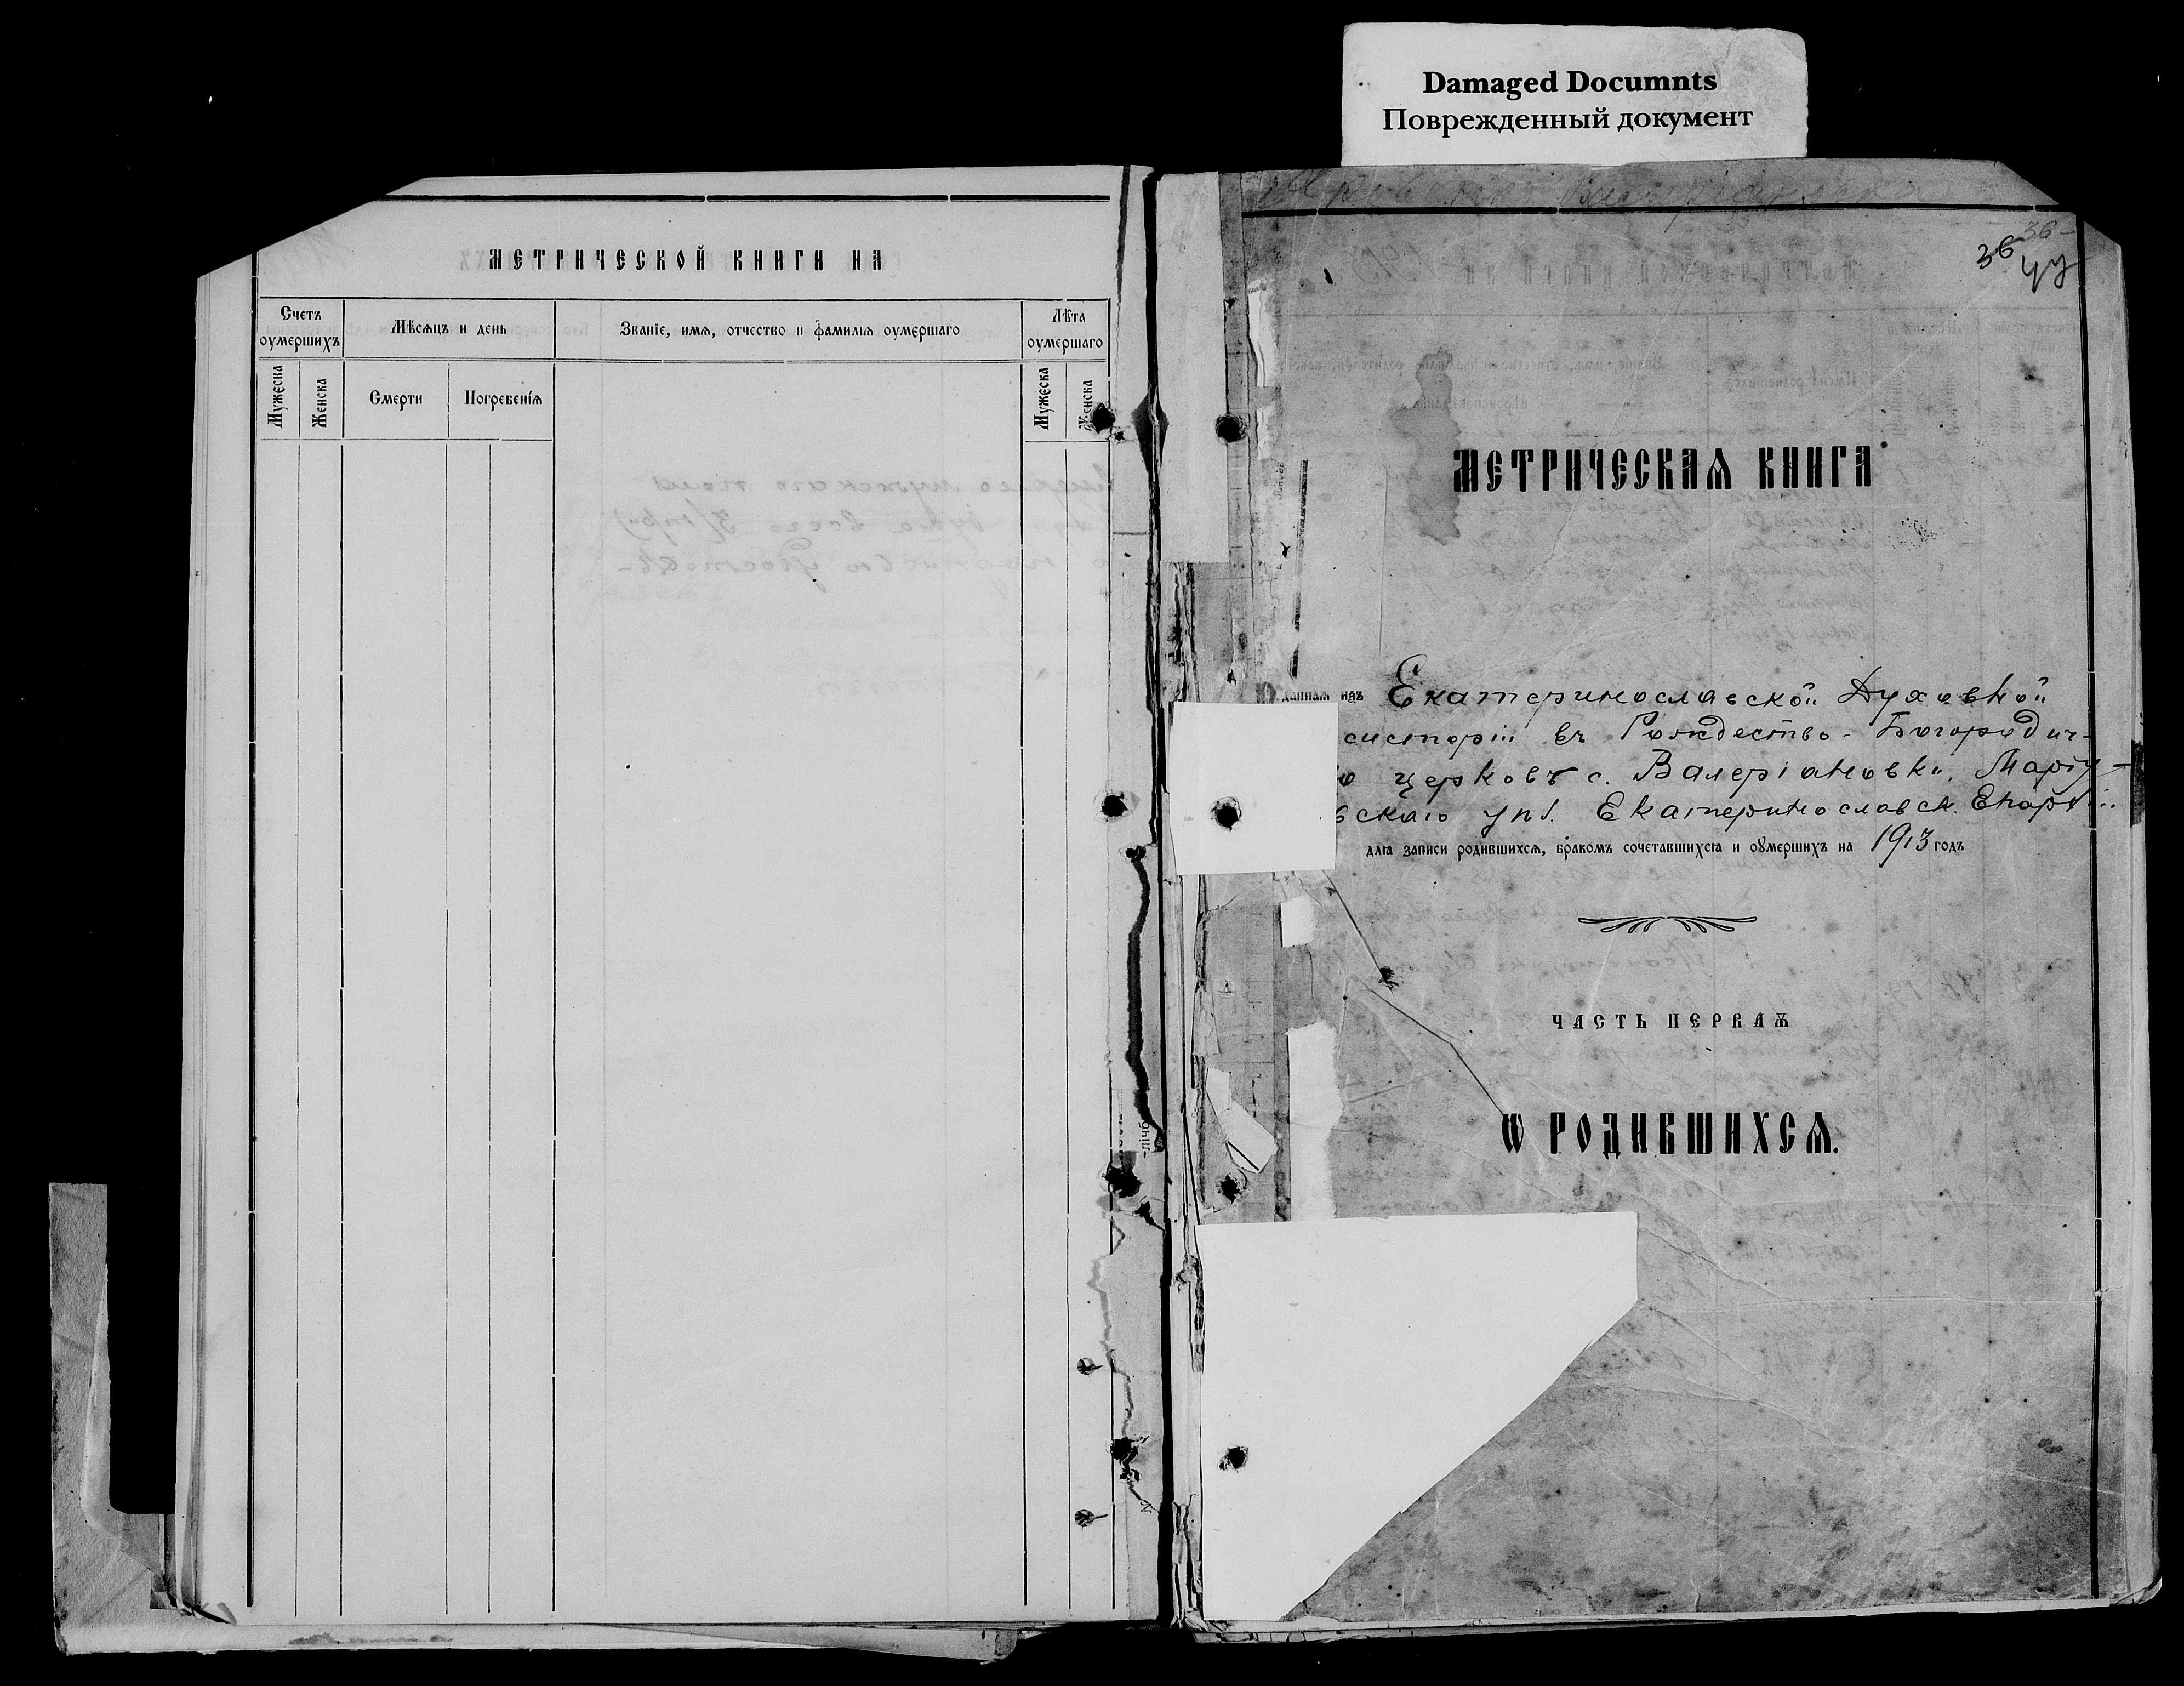 Damaged Documnts
Поврежденный документ
МЕТРИЧЕСКОЙ КНИГИ НА
Счетъ оумершихъ
Мѣсяцъ и день
Званіе, имя, отчество и фамилія оумершаго
Лѣта оумершаго
Мужеска
Женска
Смерти
Погребенія
Мужеска
Женска
36
36
МЕТРИЧЕСКАѦ КНИГА
данная изъ Екатеринославской Духовной
систоріи въ Рождество-Богородич-
ю церковь с. Валеріановки, Маріу-
вскаго у. Екатеринославск. Епархіи.
для записи родившихся, бракомъ сочетавшихся и оумершихъ на 1913 годъ
ЧАСТЬ ПЕРВАѦ
Ѡ РОДИВШИХСѦ.